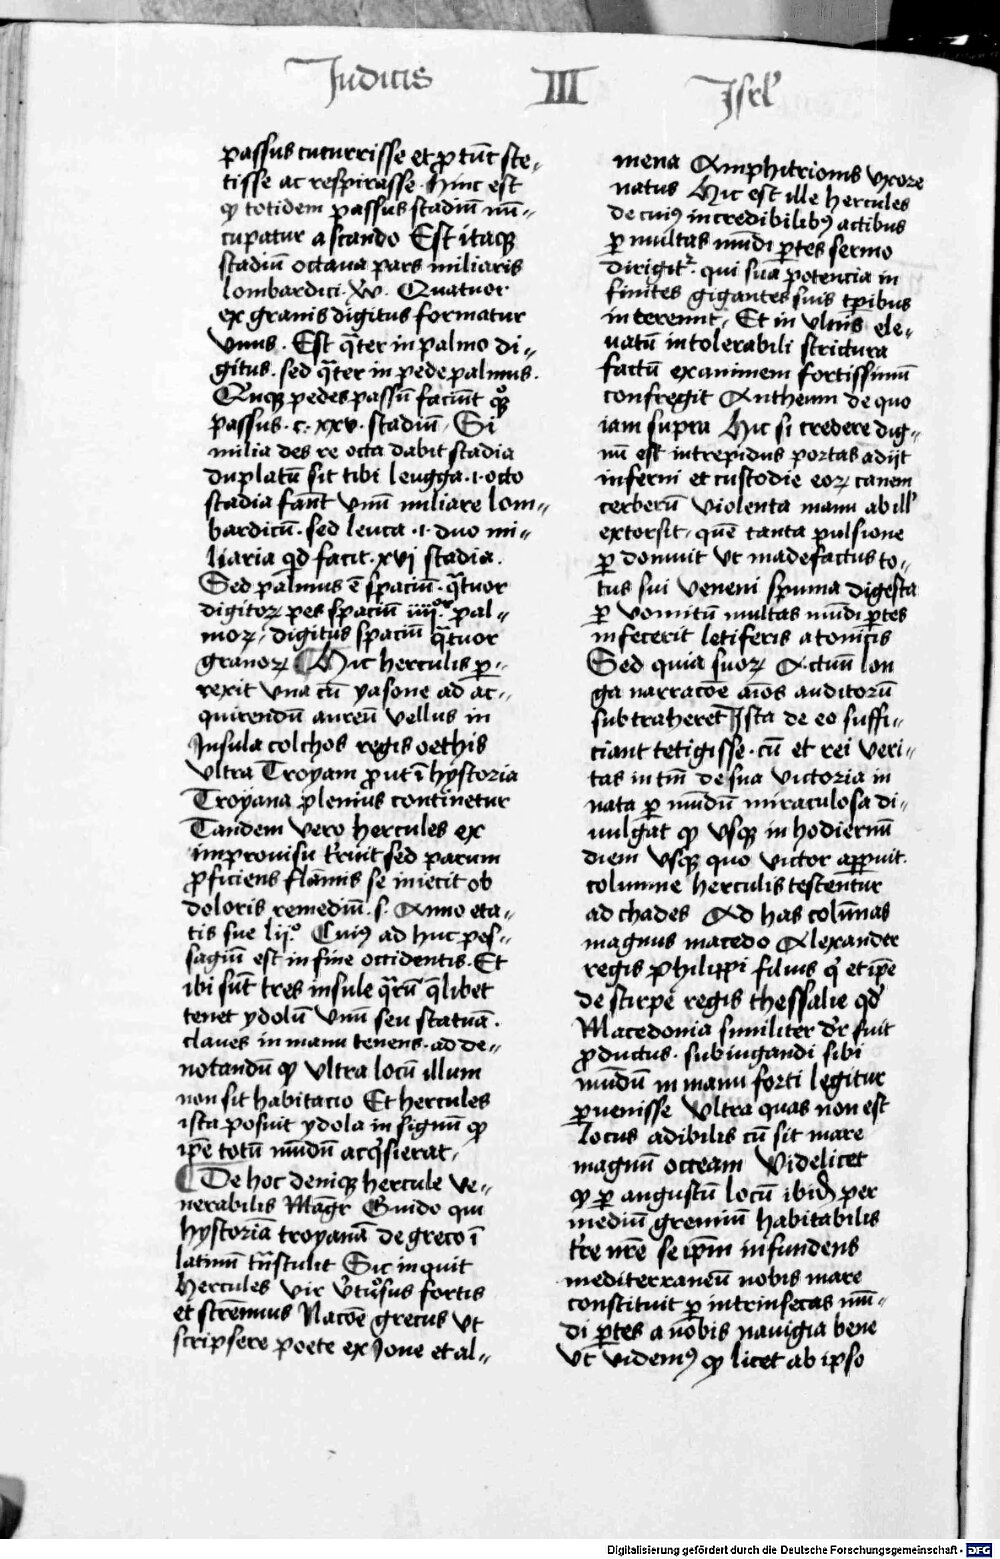 Judicis III Isrl'
passus cucurrisse et ꝓ tūc ste-
tisse ac respirasse. Hinc est
ꝙ totidem passus stadiū nū-
cupatur a stando Est itaqꝫ
stadiū octaua pars miliaris
lombardici. W. Quatuor
ex granis digitus formatur
vnus. Est qͣter in palmo di-
gitus. sed qͣter in pede palmus.
Quīqꝫ pedes passū faciūt qͦqꝫ
passus. c. xxv. stadiū. Si
milia des re octa dabit stadia
duplatū sit tibi leugga .i. octo
stadia fanūt vnū miliare lom-
bardicū. sed leuca .i. duo mi-
liaria qd facit. xvj stadia.
Sed palmus ē spaciū. qͣtuor
digitoꝝ pes spaciū iiijoꝛ pal-
moꝝ, digitus spaciū qͣtuor
granoꝝ Hic herculis ꝑ-
rexit vna cū yasone ad ac-
quirendū aureū vellus in
Insula colchos regis oethis
vltra Troyam ꝓut ī hystoria
Troyana plenius continetur
Tandem vero hercules ex
improuisu sed parum
ꝓficiens flāmis se iniecit ob
doloris remediū. s. Anno eta-
tis sue lij.º Cuiꝯ ad huc pes-
sagiū est in fine occidentis. Et
ibi sūt tres insule qͣrū qͣlibet
tenet ydolū vnū seu statuā.
claues in manu tenens. ad de-
notandū ꝙ vltra locū illum
non sit habitacio Et hercules
ista posuit ydola in signū ꝙ
ip̄e totū mūdū acq̇sierat.
De hoc deniqꝫ hercule ve-
nerabilis Magr̄ Guido qui
hystoriā troyanā de greco ī
latinū trāstulit Sic inquit
Hercules vir v̓tuͦsus fortis
et strēnuus Nacōe grecus vt
scripsere poete ex Ioue et al-
mena Amphitrionis vxore
natus Hic est ille hercules
de cuiꝯ incredibilibꝯ actibus
ꝑ multas mūdi ꝑtes sermo
dirigitᷣ. qui sua potencia in
finites gigantes suis tꝑibus
interemt. Et in vlnis ele-
uatū intolerabili strictura
factū exanimem fortissimū
confregit Antheum de quo
iam supra Hic si credere dig-
nū est intrepidus portas adijt
inferni et custodie eoꝝ canem
cerberū violenta manu ab ill'
extorsit. quē tanta pulsione
ꝑ domuit vt madefactus to-
tus sui veneni spuma digesta
ꝑ vomitū multas mūdi ꝑtes
infecerit letiferis atonicis
Sed quia suoꝝ Actuū lon
ga narracōe aīos auditorū
subtraheret Ista de eo suffi-
ciant tetigisse. cū et rei veri-
tas in tm̄ de sua victoria in
nata ꝑ mūdū miraculosa di-
uulgāt ꝙ vsqꝫ in hodiernū
diem vsqꝫ quo victor apꝑuit.
columne herculis testentur
ad chades Ad has colūnas
magnus macedo Alexander
regis philippi filius q̇ et ip̄e
de stirpe regis thessalie qd̓
Macedonia similiter dr̄ fuit
ꝓductus. subiugandi sibi
mūdū in manu forti legitur
ꝑuenisse vltra quas non est
locus adibilis cū sit mare
magnū occeam Videlicet
ꝙ ꝑ angustū locū ibid' per
mediū gremiū habitabilis
tr̄e nr̄e se ip̄m infundens
mediterraneū nobis mare
constituit ꝑ intrinsecas mū-
di ꝑtes a nobis nauigia bene
vt videmꝯ ꝙ licet ab ipso
Digitalisierung gefördert durch die Deutsche Forschungsgemeinschaft - DFG